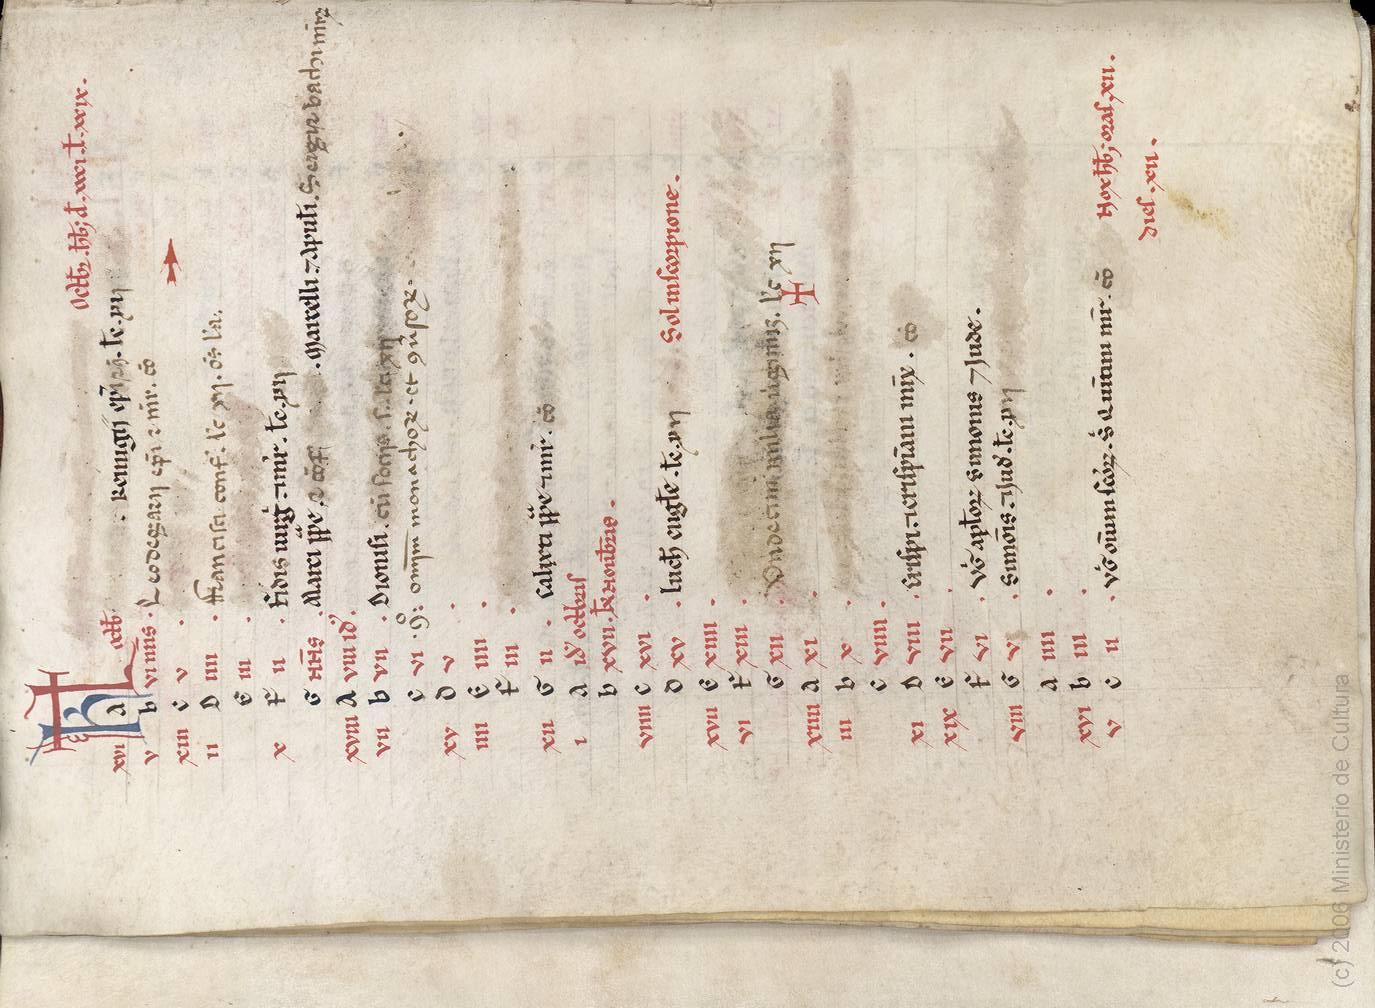 KL octb.
Octb. hb; d. xxxi. l. xxix.
xvi A . Remigii epi . lc. xii
v b vi nns . Leodegarii epi 7 mr. co
xiii c v .
ii D iiii . Francisci conf. lc xii.
E iii .
x F ii . Fidis uirg 7 mr. lc. xii
G nns . Marci pp . Marcelli 7 Apuli. Sergii bachi mr
xviii A viii id .
vii b vii . Dionisii. cu sociis
c vi . omnium monachorz. et
xv D v .
iiii E iiii .
F iii .
xii G ii . Calixti pp 7 mr. co
i A id octbris
b xvii. kl nouibris .
viiii c xvi .
D xv . luch eugte. lc. xii Sol in scorpione .
xvii E xiiii .
vi F xiii .
G xii . Undecim milia uirginuz. lc xii
xiiii A xi .
iii b x .
c viiii .
xi D viii . Crispi 7 crispiani mr . co
xix E vii .
F vi . Vg aptor Simonis 7 Jude .
viii G v . Simois 7 Jud. lc. xii
A iiii .
xvi b iii .
v c ii . Vg oium scorz. S Quitini mr. co
Nox hb; oras. xii .
dies. xii .
(c) 2006 Ministerio de Cultura